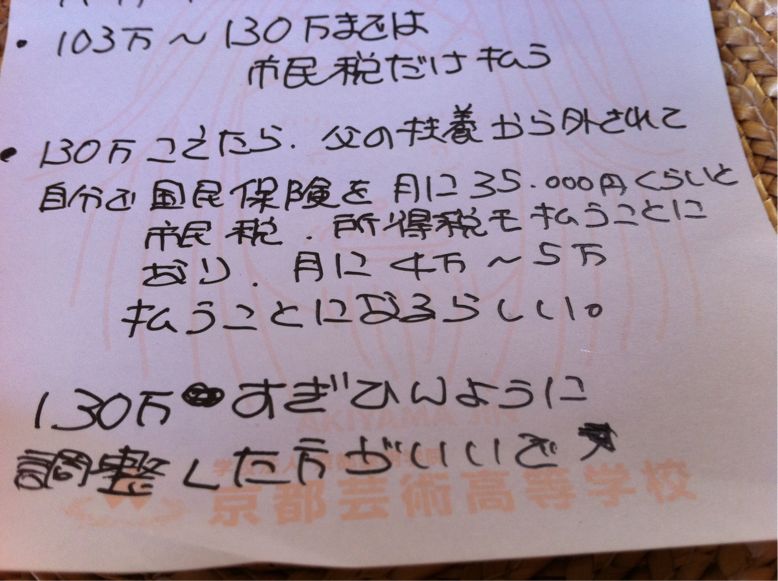 ・103万〜130万までは
市民税だけ払う
・130万こえたら、父の扶養から外されて
自分で国民保険を月に35.000円くらいと
市民税、所得税も払うことに
なり、月に4万〜5万
払うことになるらしい。
130万すぎひんように
調整した方がいいで
AKIYAMA JIN
京都芸術高等学校